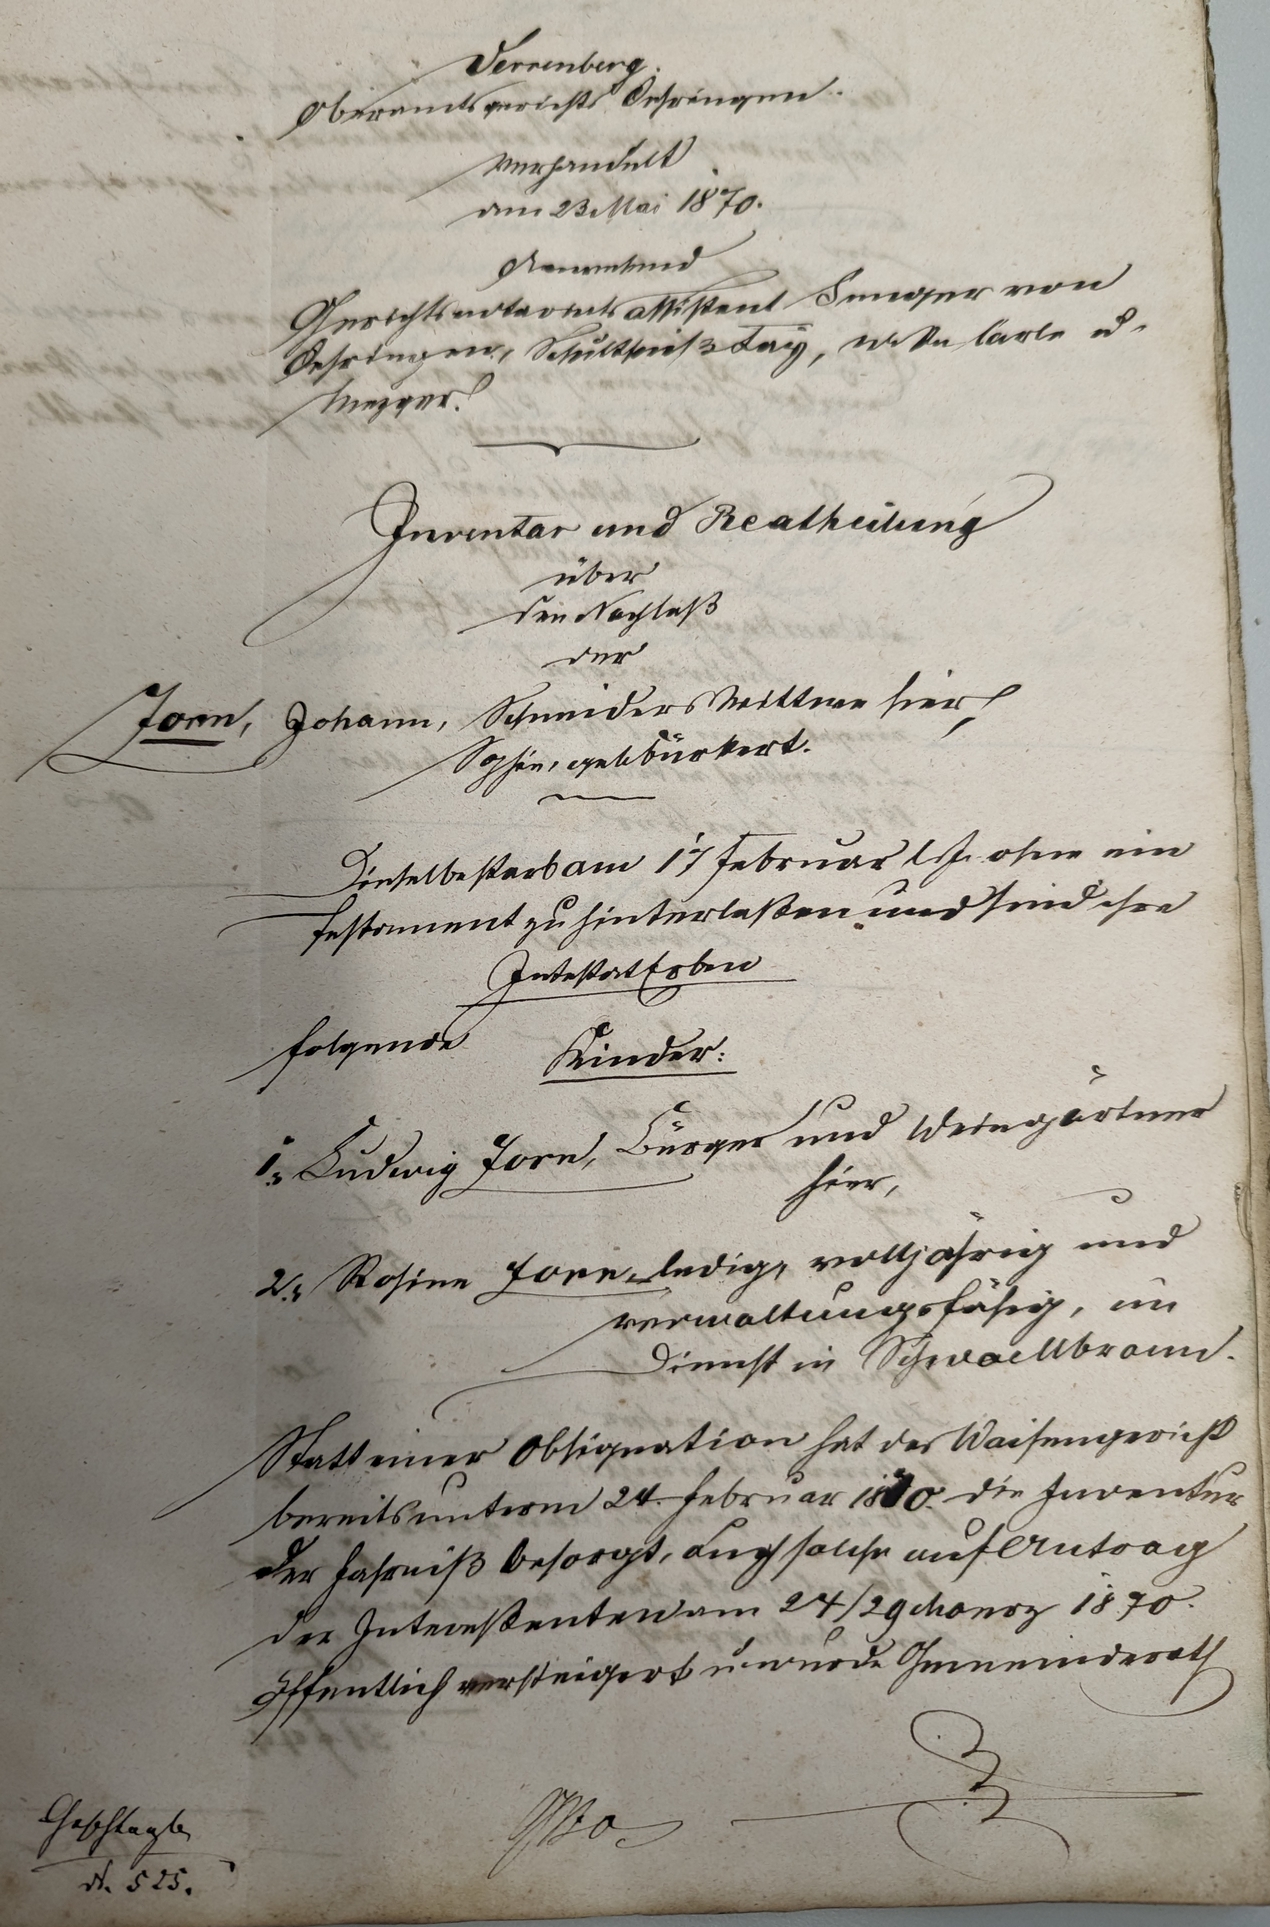 Verrenberg.
Oberamtsgerichts Oehringen.
Verhandelt
am 23 Mai 1870.
Anwesend
Gerichtsnotariatsassistent von
Oehringen, Schultheiß Tay,
Mezger.
Inventar und Realtheilung
über
den Nachlaß
der
Jorn, Johann, Schneiders Wittwe hier,
Sophie, geb. Bürkert.
Dieselbe starb am 17 Februar l. J. ohne ein
Testament zu hinterlaßen und sind ihre
Intestat Erben
folgende Kinder:
1., Ludwig Jorn, Bürger und Weingärtner
hier,
2., Rosine Jorn, ledig, volljährig und
verwaltungsfähig, im
Dienst in
Statt einer Obsignation hat das Waisengericht
bereits unterm 24. Februar 1870. die Inventur
der Fahrniß besorgt, auch solche auf Antrag
der Interessenten am 24/29 Maerz 1870.
öffentlich versteigert u. wurde Gemeinderath
Geschtagb.
N. 525.